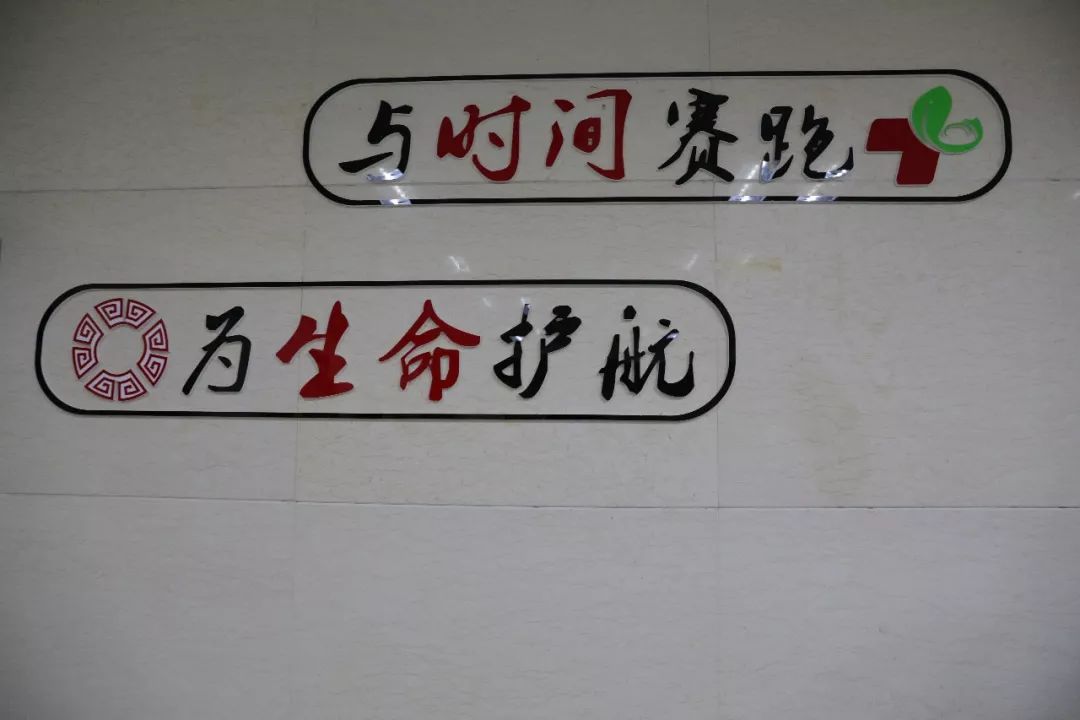 与时间赛跑
为生命护航